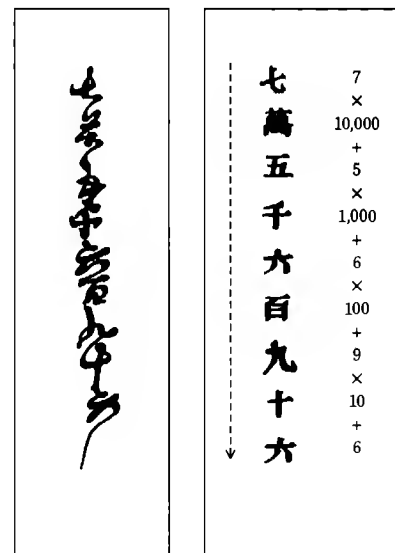 七萬五千六百九十六
七萬五千六百九十六
7
×
10,000
+
5
×
1,000
+
6
×
100
+
9
×
10
+
6